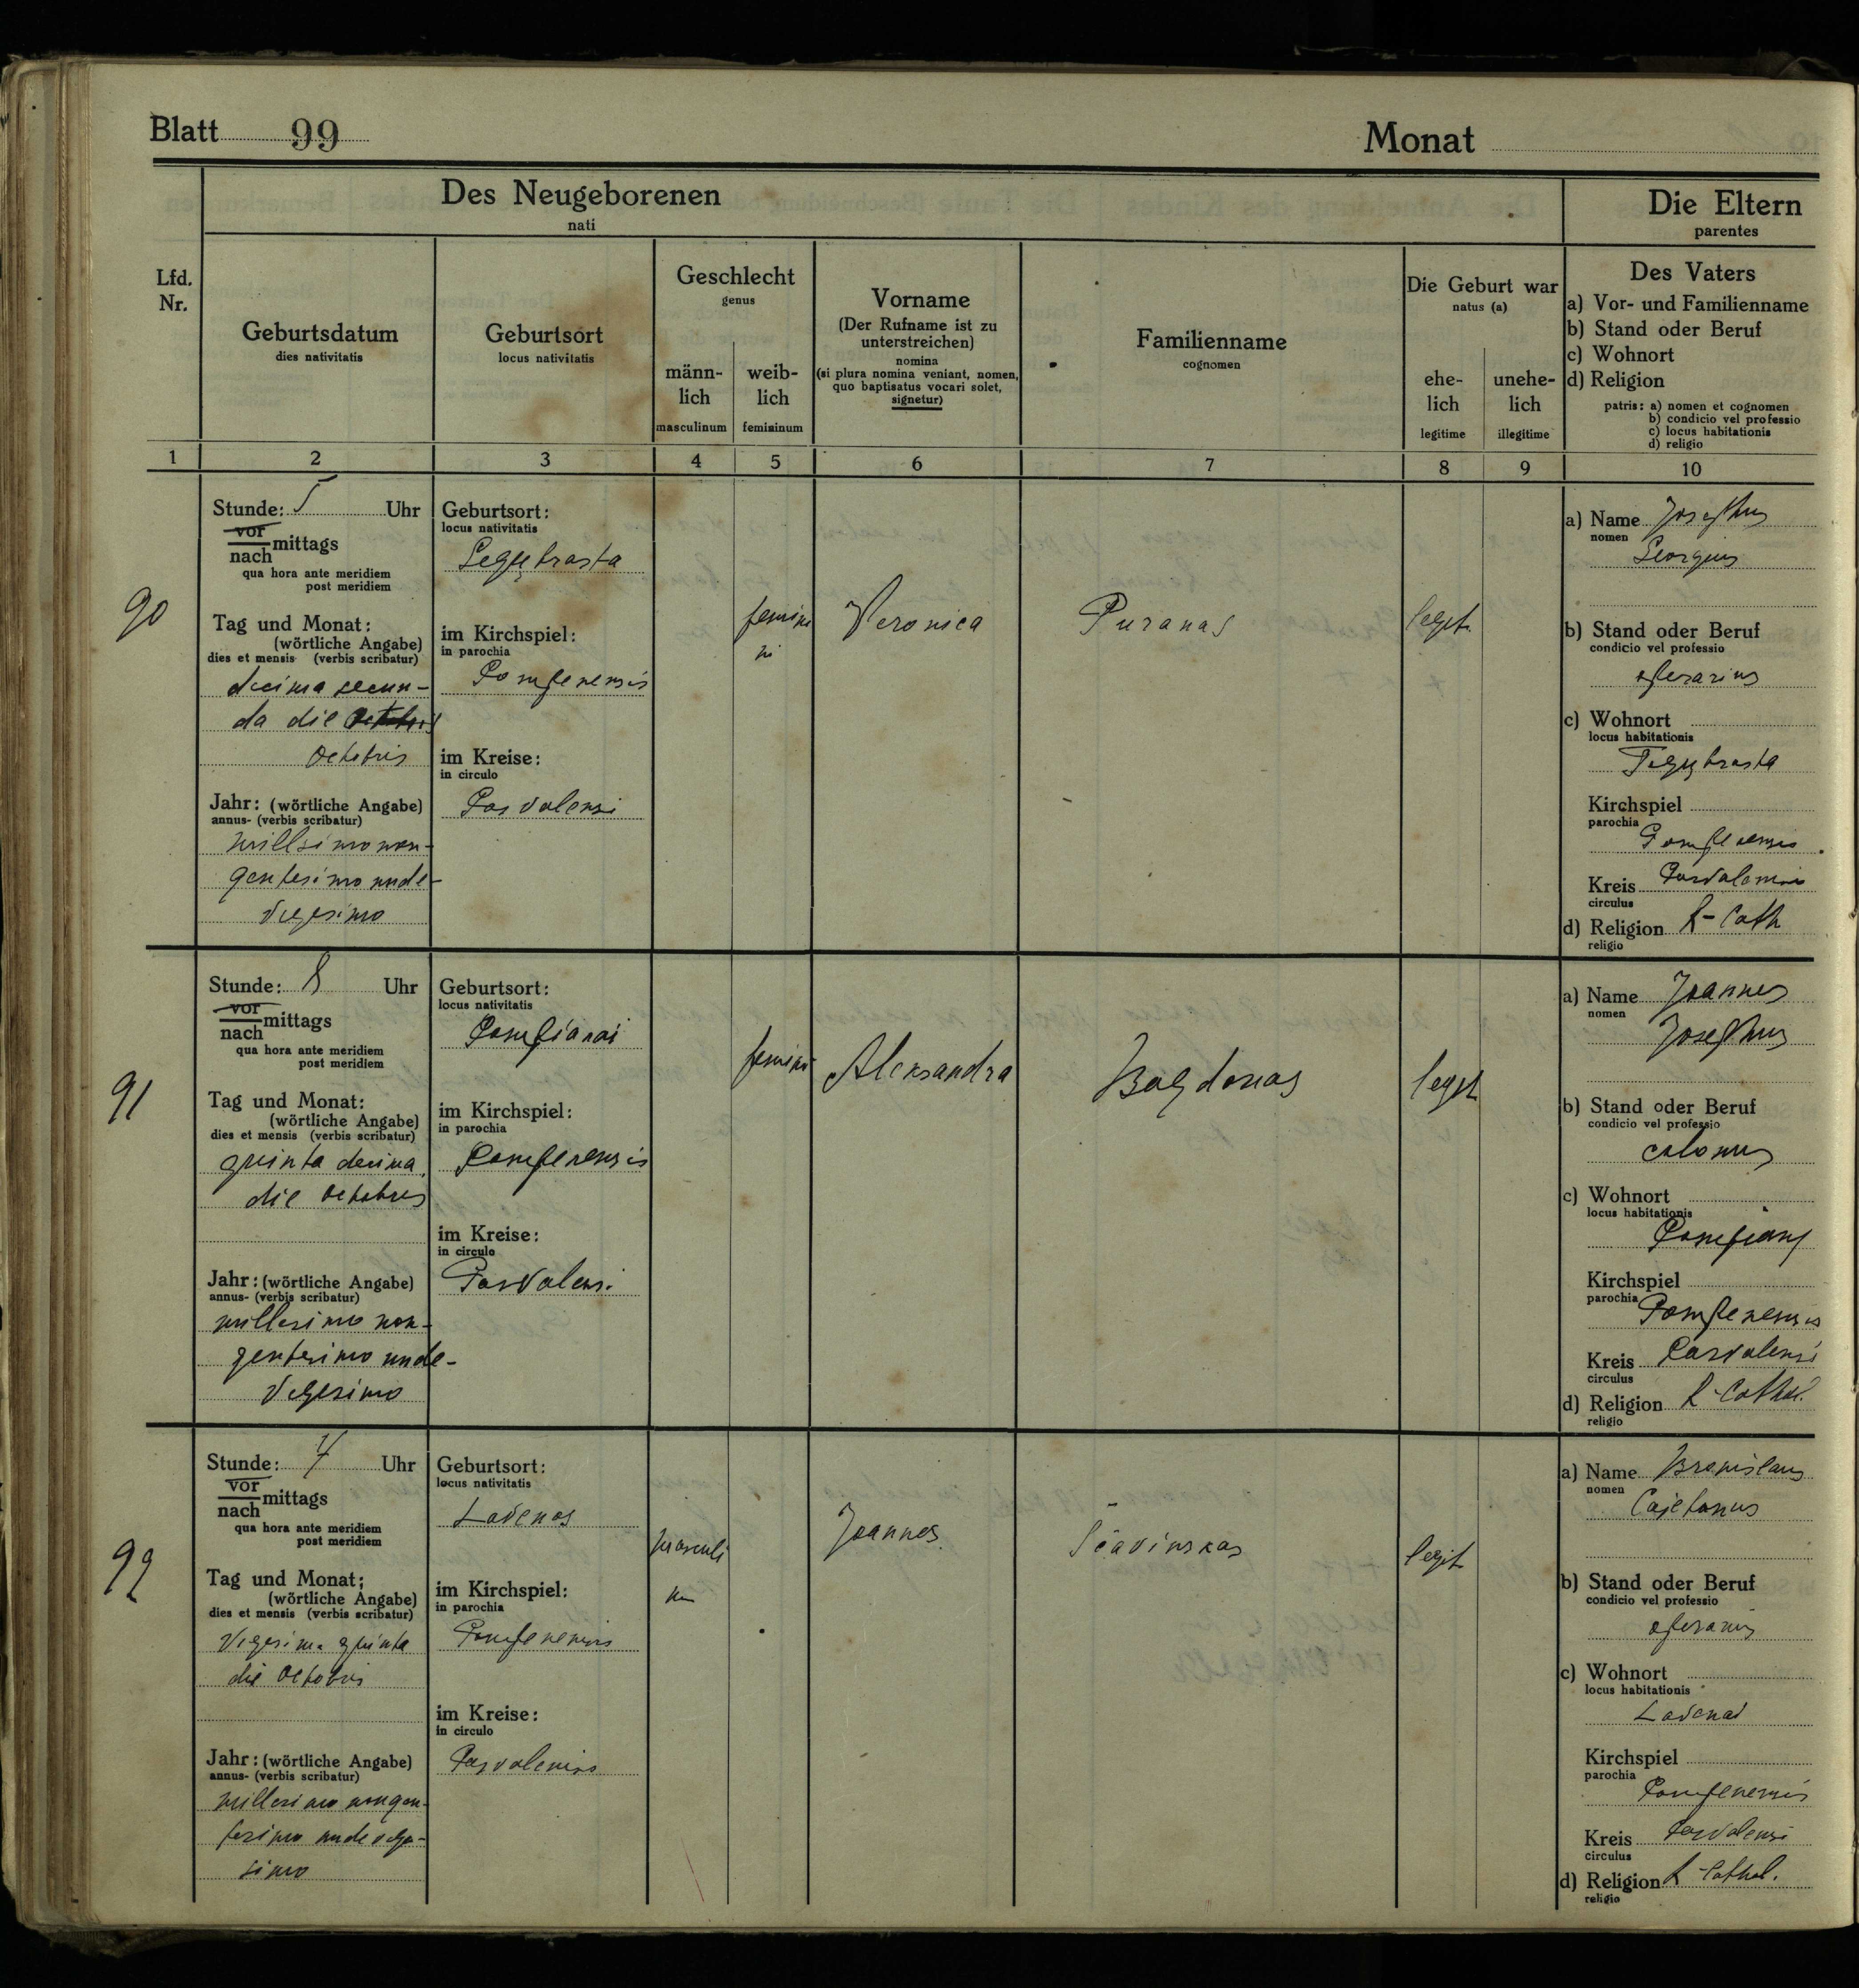 Blatt 99
Monat
Des Neugeborenen
nati
Die Eltern
parentes
Lfd.
Nr.
Geburtsdatum
dies nativitatis
Geburtsort
locus nativitatis
Geschlecht
genus
männ-
lich
masculinum
weib-
lich
femininum
Vorname
(Der Rufname ist zu
unterstreichen)
nomina
(si plura nomina veniant, nomen,
quo baptisatus vocari solet,
signetur)
Familienname
cognomen
Die Geburt war
natus (a)
ehe-
lich
legitime
unehe-
lich
illegitime
Des Vaters
a) Vor- und Familienname
b) Stand oder Beruf
c) Wohnort
d) Religion
patris: a) nomen et cognomen
b) condicio vel professio
c) locus habitationis
d) religio
1 2 3 4 5 6 7 8 9 10
90
Stunde: 5 Uhr
vor
nach mittags
qua hora ante meridiem
post meridiem
Tag und Monat:
(wörtliche Angabe)
dies et mensis (verbis scribatur)
decima secun-
da die
Octobris
Jahr: (wörtliche Angabe)
annus- (verbis scribatur)
millsimo non-
gentesimo unde-
vigesimo
Geburtsort:
locus nativitatis
im Kirchspiel:
in parochia
Pompenensis
im Kreise:
in circulo
Pasvalensi
femini
ni
Veronica
Puranas
legit.
a) Name Josephus
nomen
Georgius
b) Stand oder Beruf
condicio vel professio
operarius
c) Wohnort
locus habitationis
Kirchspiel
parochia
Pompenensis
Kreis Pasvalensis
circulus
d) Religion R-Cath
religio
91
Stunde: 8 Uhr
vor
nach mittags
qua hora ante meridiem
post meridiem
Tag und Monat:
(wörtliche Angabe)
dies et mensis (verbis scribatur)
quinta decima
die Octobris
Jahr: (wörtliche Angabe)
annus- (verbis scribatur)
millesimo non-
gentesimo unde-
vigesimo
Geburtsort:
locus nativitatis
Pompianai
im Kirchspiel:
in parochia
Pompenensis
im Kreise:
in circulo
Pasvalensi
femini
Aleksandra
Bagdonas
legit
a) Name Joannes
nomen
Josephus
b) Stand oder Beruf
condicio vel professio
colonus
c) Wohnort
locus habitationis
Kirchspiel
parochia
Pompenensis
Kreis Pasvalensi
circulus
d) Religion R-Cathol.
religio
92
Stunde: 7 Uhr
vor
nach mittags
qua hora ante meridiem
post meridiem
Tag und Monat:
(wörtliche Angabe)
dies et mensis (verbis scribatur)
Vigesima quinta
die Octobris
Jahr: (wörtliche Angabe)
annus- (verbis scribatur)
millesimo nongen-
tesimo undevige-
simo
Geburtsort:
locus nativitatis
Lavenas
im Kirchspiel:
in parochia
Pompenensis
im Kreise:
in circulo
Pasvalensis
masculi
num
Joannes
Ščavinskas
legit
a) Name Bronislaus
nomen
Cajetanus
b) Stand oder Beruf
condicio vel professio
operarius
c) Wohnort
locus habitationis
Lavenai
Kirchspiel
parochia
Pompenensis
Kreis Pasvalensi
circulus
d) Religion R-Cathol.
religio